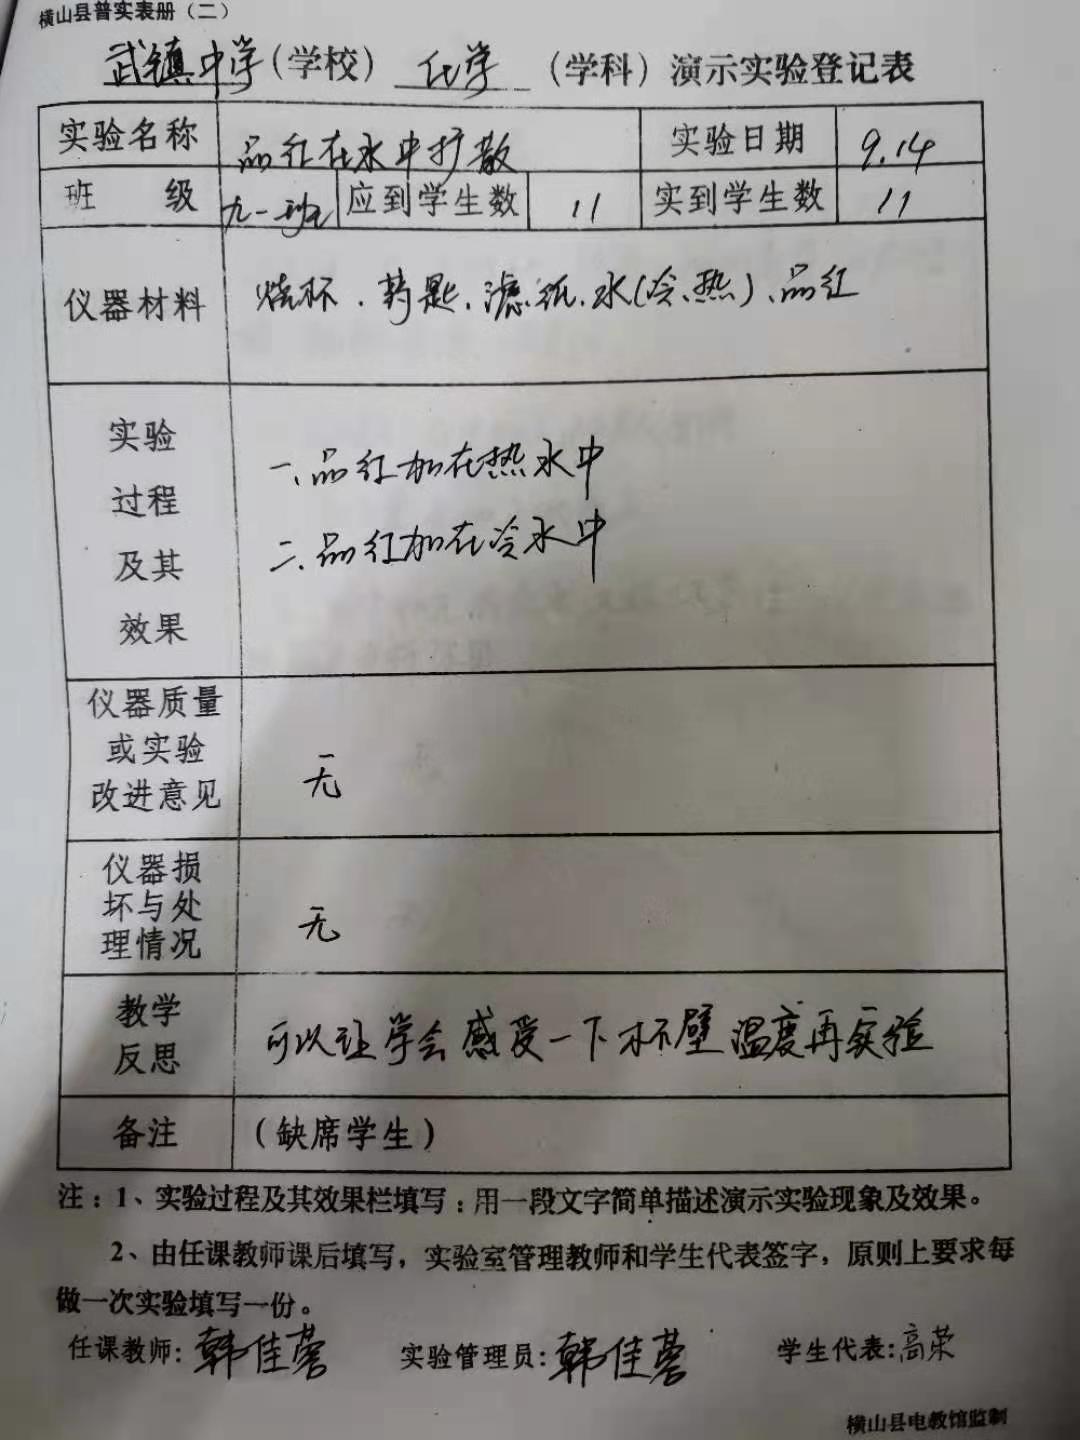 横山县普实表册（二）
武镇中学（学校） 化学 （学科）演示实验登记表
实验名称 品红在水中扩散 实验日期 9.14
班 级 九一班 应到学生数 11 实到学生数 11
仪器材料 烧杯、药匙、滤纸、水(冷、热)、品红
实验
过程
及其
效果
一、品红加在热水中
二、品红加在冷水中
仪器质量
或实验
改进意见
无
仪器损
坏与处
理情况
无
教学
反思
可以让学会感受一下杯壁温度再实验
备注 （缺席学生）
注：1、实验过程及其效果栏填写：用一段文字简单描述演示实验现象及效果。
2、由任课教师课后填写，实验室管理教师和学生代表签字，原则上要求每
做一次实验填写一份。
任课教师：韩佳蓉 实验管理员：韩佳蓉 学生代表：高荣
横山县电教馆监制